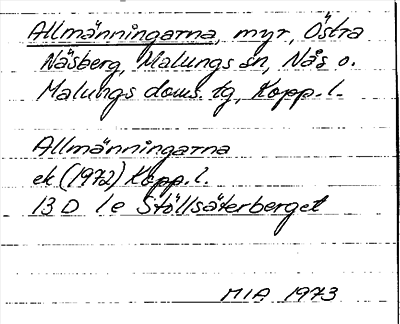 Allmänningarna, myr, Östra
Näsberg, Malungs sn, Nås o.
Malungs doms. tg, Kopp. l.
Allmänningarna
ek (1972) Kopp. l.
13 D 1e Stöllsäterberget
MIA 1973